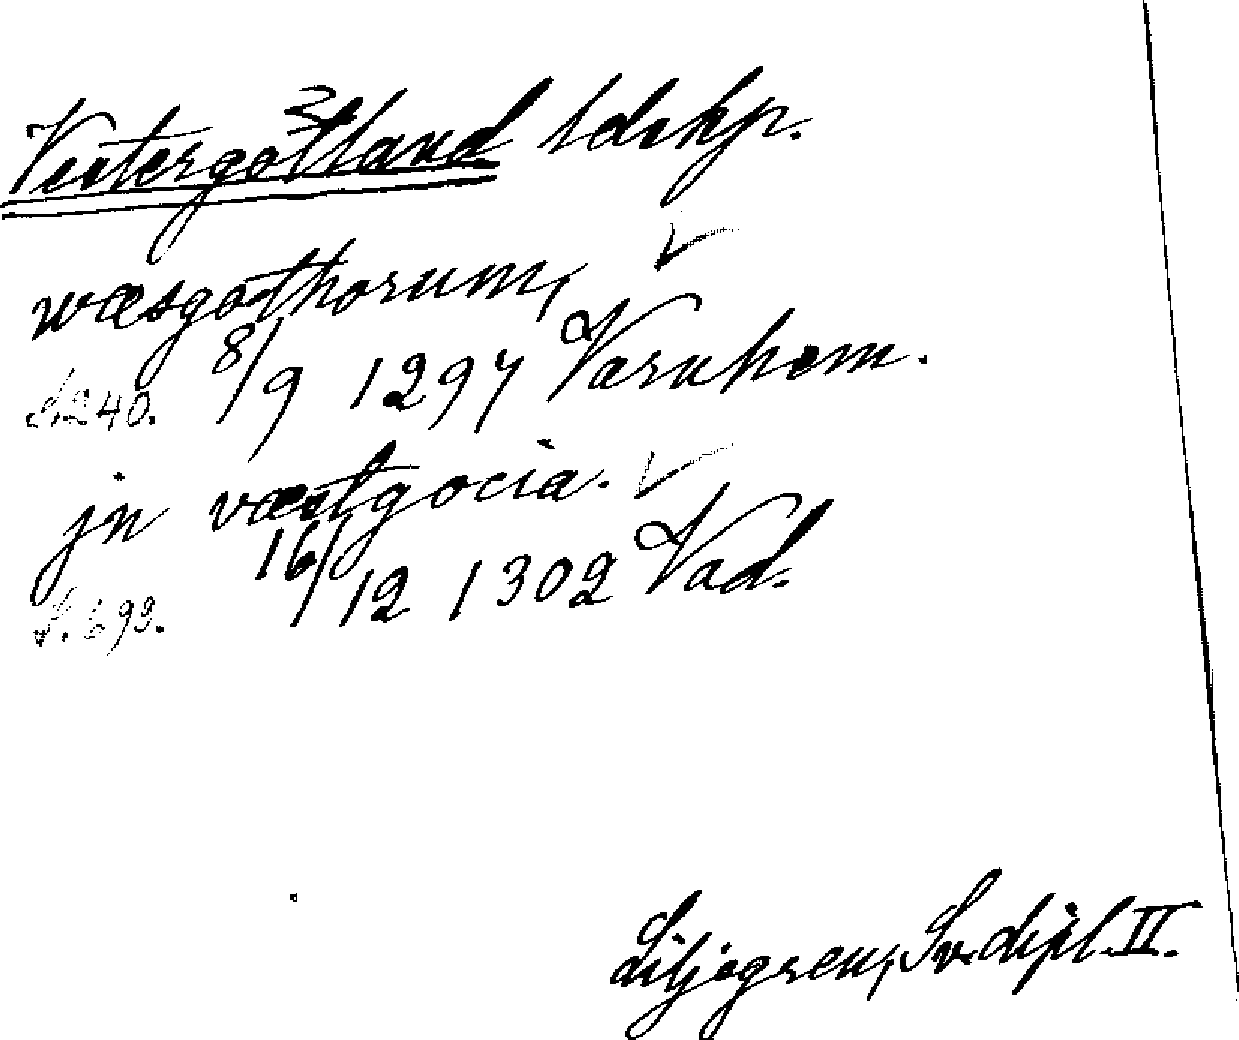 Vestergötland ldskp.
wæsgothorum,
S. 240. 8/9 1297 Varnhem.
jn væstgocia.
S. 693. 16/12 1302 Vad.
Liljegren, Sv. dipl. II.